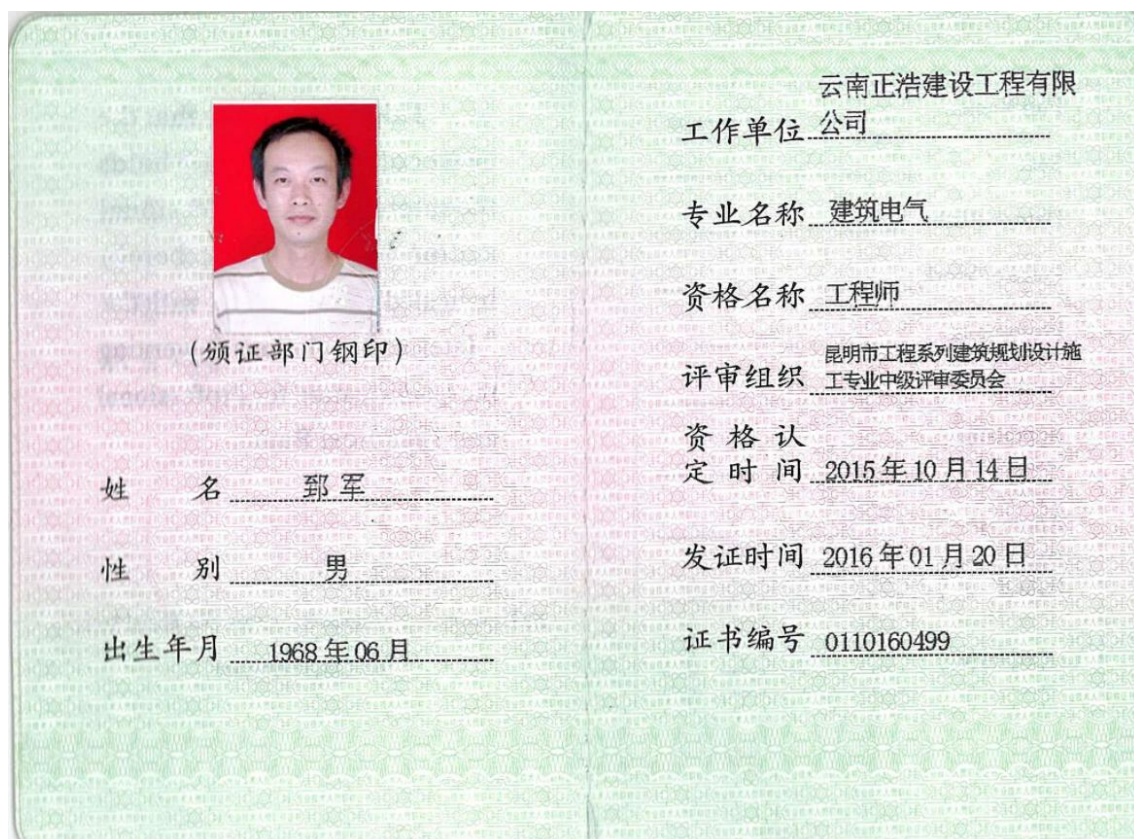 (颁证部门钢印)
姓 名 郅军
性 别 男
出生年月 1968年06月
云南正浩建设工程有限
工作单位 公司
专业名称 建筑电气
资格名称 工程师
昆明市工程系列建筑规划设计施
评审组织 工专业中级评审委员会
资格认
定时间 2015年10月14日
发证时间 2016年01月20日
证书编号 0110160499